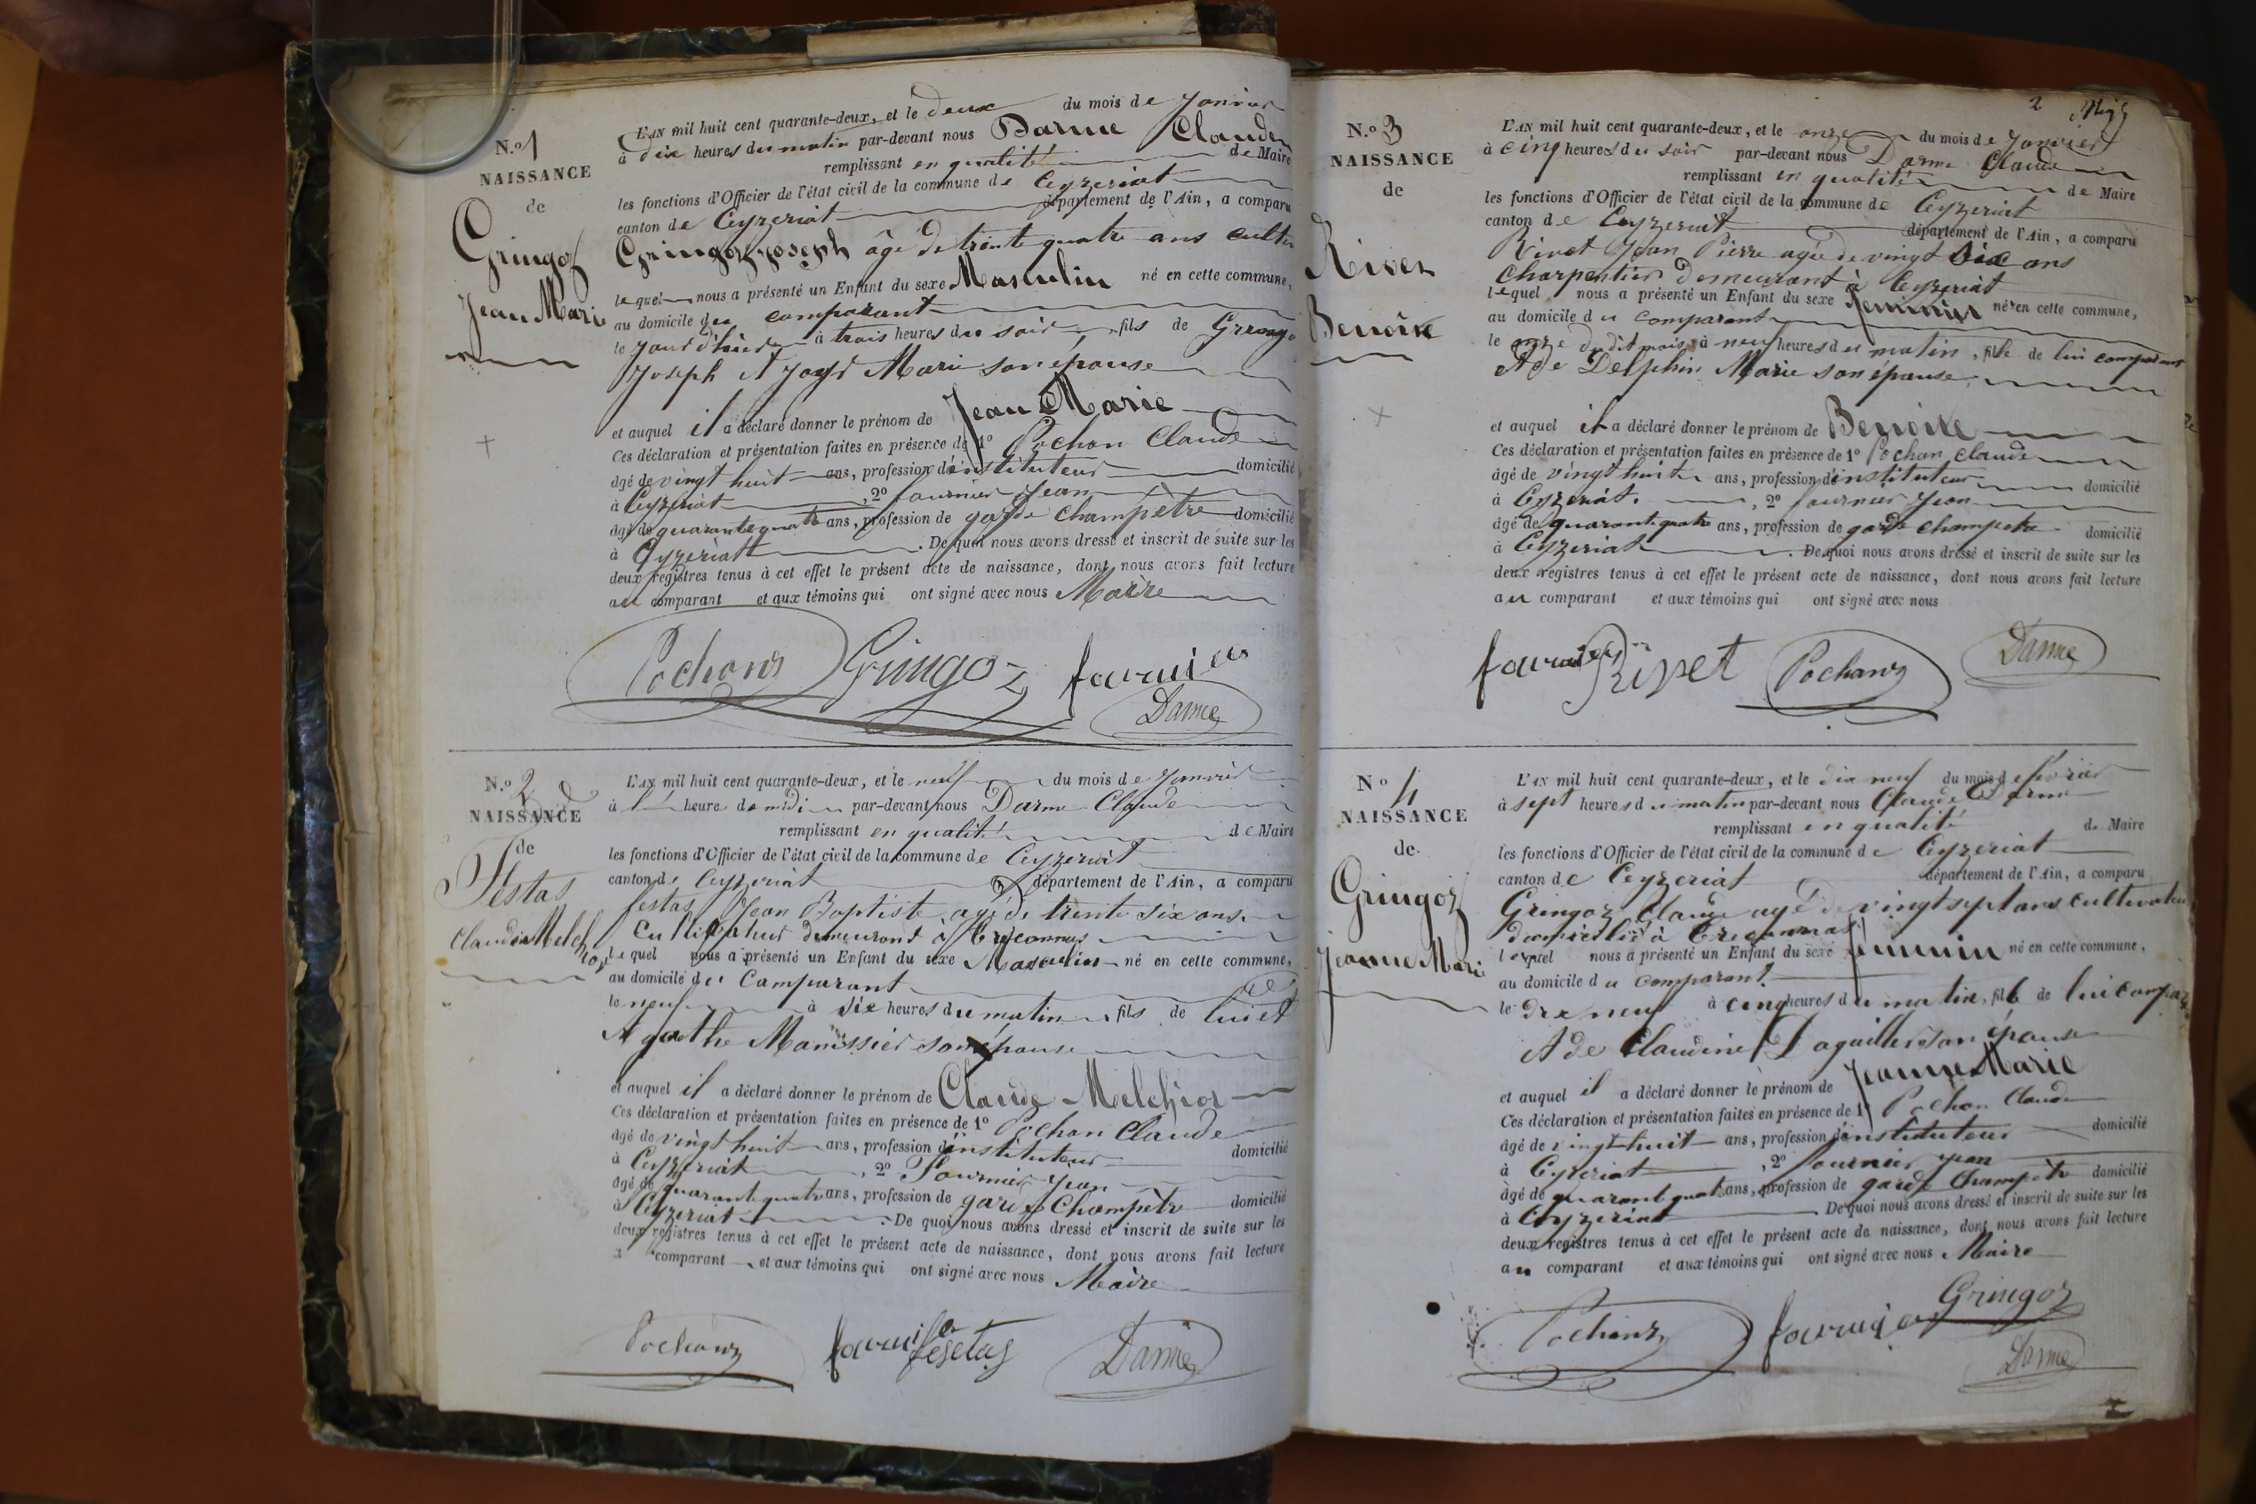 N.º 1
NAISSANCE
de
Gringoz
Jean Marie
L'AN mil huit cent quarante-deux, et le deux du mois de Janvier
à dix heures du matin par-devant nous Darme Claude
remplissant en qualité de Maire
les fonctions d'Officier de l'état civil de la commune de Ceyzeriat
canton de Ceyzeriat département de l'Ain, a comparu
Gringoz Joseph âgé de trente quatre ans
lequel nous a présenté un Enfant du sexe Masculin né en cette commune,
au domicile du comparant
le à trois heures du soir fils de
Joseph et Marie son épouse
et auquel il a déclaré donner le prénom de Jean Marie
Ces déclaration et présentation faites en présence de 1º Pochon Claude
âgé de vingt huit ans, profession d'instituteur domicilié
à Ceyzeriat, 2º fournier Jean
âgé de quarante quatre ans, profession de garde Champêtre domicilié
à Ceyzeriat. De quoi nous avons dressé et inscrit de suite sur les
deux registres tenus à cet effet le présent acte de naissance, dont nous avons fait lecture
au comparant et aux témoins qui ont signé avec nous Maire
Pochon Gringoz fournier
Darme
N.º 2
NAISSANCE
de
Festas
Claude Melchior
L'AN mil huit cent quarante-deux, et le neuf du mois de Janvier
à heure de midi par-devant nous Darme Claude
remplissant en qualité de Maire
les fonctions d'Officier de l'état civil de la commune de Ceyzeriat
canton de Ceyzeriat département de l'Ain, a comparu
festas Jean Baptiste agé de trente six ans
Cultivateur demeurant à
lequel nous a présenté un Enfant du sexe Masculin né en cette commune,
au domicile du Comparant
le neuf à six heures du matin, fils de lui et
Agathe son épouse
et auquel il a déclaré donner le prénom de Claude Melchior
Ces déclaration et présentation faites en présence de 1º Pochon Claude
âgé de vingt huit ans, profession d'instituteur domicilié
à Ceyzeriat, 2º Fournier Jean
âgé de quarante quatre ans, profession de garde Champêtre domicilié
à Ceyzeriat. De quoi nous avons dressé et inscrit de suite sur les
deux registres tenus à cet effet le présent acte de naissance, dont nous avons fait lecture
comparant et aux témoins qui ont signé avec nous Maire
Pochon fournier festas Darme
2
N.º 3
NAISSANCE
de
Rivet
Benoite
L'AN mil huit cent quarante-deux, et le onze du mois de Janvier
à cinq heures du soir par-devant nous Darme Claude
remplissant en qualité de Maire
les fonctions d'Officier de l'état civil de la commune de Ceyzeriat
canton de Ceyzeriat département de l'Ain, a comparu
Rivet Jean Pierre agé de vingt six ans
Charpentier demeurant à Ceyzeriat
lequel nous a présenté un Enfant du sexe feminin né en cette commune,
au domicile du comparant
le onze dudit mois, à neuf heures du matin, fille de lui comparant
et de Delphin Marie son épouse
et auquel il a déclaré donner le prénom de Benoite
Ces déclaration et présentation faites en présence de 1º Pochon Claude
âgé de vingt huit ans, profession d'instituteur domicilié
à Ceyzeriat, 2º fournier Jean
âgé de quarante quatre ans, profession de garde champetre domicilié
à Ceyzeriat. De quoi nous avons dressé et inscrit de suite sur les
deux registres tenus à cet effet le présent acte de naissance, dont nous avons fait lecture
au comparant et aux témoins qui ont signé avec nous
fournier Rivet Pochon Darme
Nº 4
NAISSANCE
de
Gringoz
Jeanne Marie
L'AN mil huit cent quarante-deux, et le dix neuf du mois de fevrier
à sept heures du matin par-devant nous Claude Darme
remplissant en qualité de Maire
les fonctions d'Officier de l'état civil de la commune de Ceyzeriat
canton de Ceyzeriat département de l'Ain, a comparu
Gringoz Claude agé de vingt sept ans cultivateur
domicilié à
lequel nous a présenté un Enfant du sexe feminin né en cette commune,
au domicile du comparant
le dix neuf à cinq heures du matin, fille de lui
et de Claudine son épouse
et auquel il a déclaré donner le prénom de Jeanne Marie
Ces déclaration et présentation faites en présence de 1º Pochon Claude
âgé de vingt-huit ans, profession d'instituteur domicilié
à Ceyzeriat, 2º fournier Jean
âgé de quarante quatre ans, profession de garde Champêtre domicilié
à Ceyzeriat. De quoi nous avons dressé et inscrit de suite sur les
deux registres tenus à cet effet le présent acte de naissance, dont nous avons fait lecture
au comparant et aux témoins qui ont signé avec nous Maire
Pochon fournier Gringoz
Darme